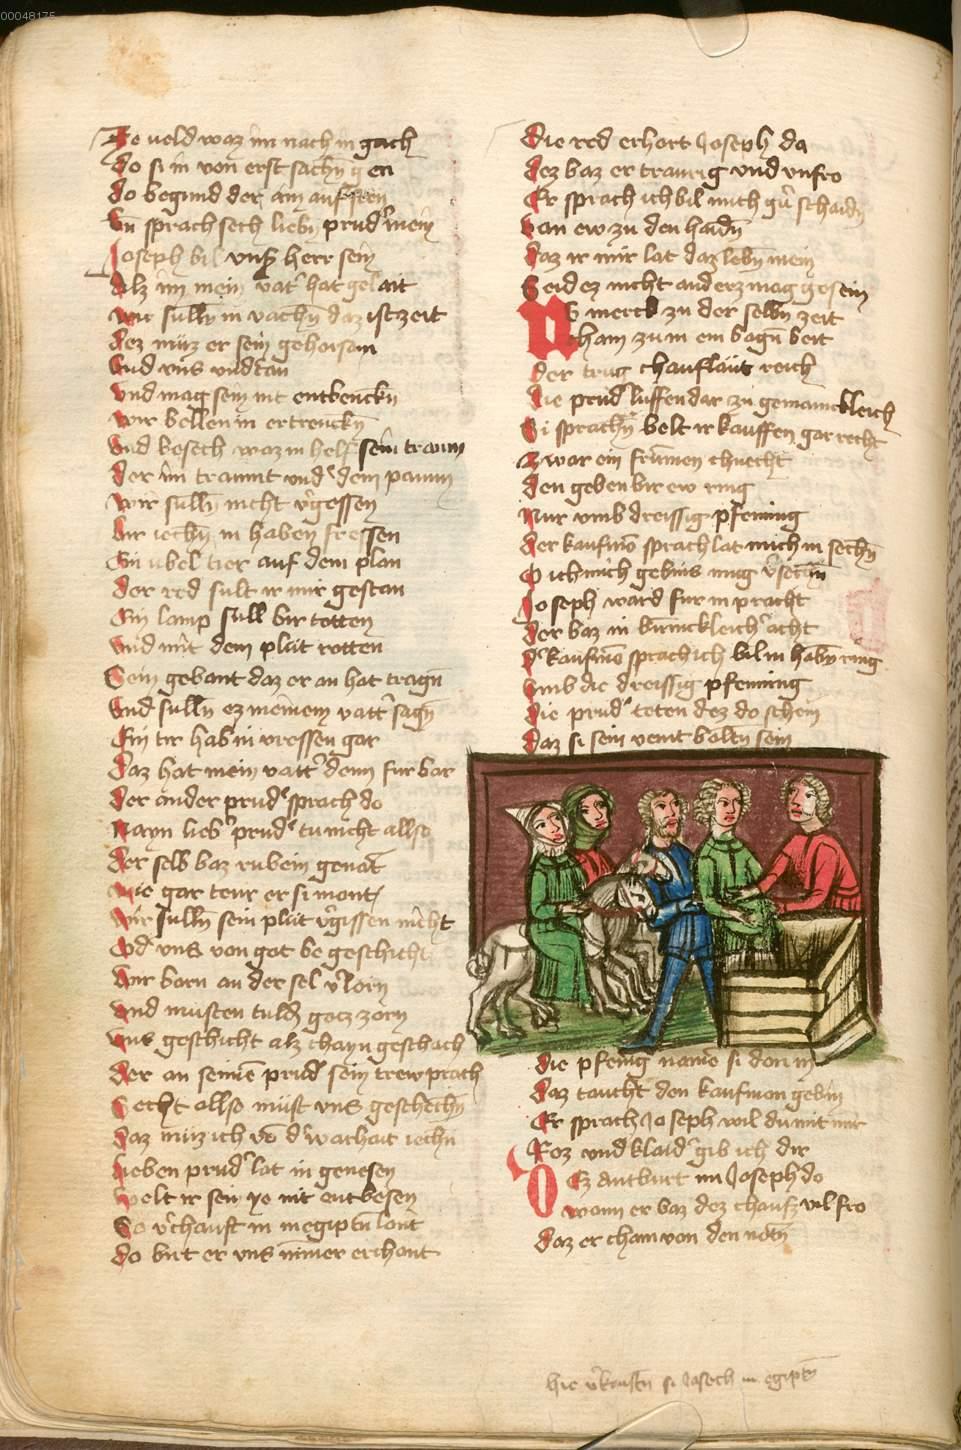 00048175
Ze veld waz im nach in gach
do si in von erst sachn gen
do begund der ain auf sten
Vn sprach sech liebn prud' mein
Joseph bil vnser herr sein
Alz im mein vat' hat gelait
wir sulln in vachn daz ist zeit
dez muz er sein gehorsam
Vnd vns vndtan
vnd mag sein nit entbenckn
wir bellen in ertrenckn
Vnd besech waz in helf sein traum
der im traumt vnd' dem paum
wir sulln nicht v'gessen
bir iechn in haben fressen
Ein vbel tier auf dem plan
der red sult ir mir gestan
Ein lamp sull bir totten
vnd mit dem plut rotten
Sein gebant daz er an hat tragn
Vnd sulln ez meinem vatt' sagn
Ein tir hab in vressen gar
Daz hat mein vatt' denn fur bar
der ander prud' sprach do
Nayn lieb' prud' tu nicht allso
der selb baz rubein genat
wie gar teur er si mont
wir sulln sein plut v'gissen nicht
Od' vns von got be geschicht
bir barn an der sel v'lorn
vnd musten tuldn gotz zorn
vns geschicht alz chayn geschach
der an seine prud' sein trew prach
Secht allso must vns geschechn
daz muz ich vo d' wachait iechn
lieben prud' lat in genesen
welt ir sein ye nit entbesen
So v'chauft in in egiptn lant
do birt er vns nimer erchant
Die red erhort Joseph da
dez baz er traurig vnd vnfro
Er sprach ich bil mich gu schaidn
van ew zu den haidn
daz ir mir lat daz lebn mein
Seid ez nicht anderz mag gesein
Nv merck zu der selbn zeit
cham zu in ein bagn beit
der trug chauflaut reich
die prud' luffen dar zu gemainckleich
Si sprachn belt ir kauffen gar recht
zwar ein frumen chnecht
den geben bir ew ring
Nur vmb dreissig pfening
der kaufmo sprach lat mich in sechn
O ich mich gebins mug v'sechn
Joseph ward fur in pracht
der baz in birnickleich' acht
d' kaufmo sprach ich bil in habn ring
vmb die dreissig pfenning
die prud' teten dez do schein
daz si sein vemt boltn sein
die pfenig name si don in
daz taucht den kaufmon gebin
Er sprach Joseph wil du mit mir
Roz vnd klaid' gib ich dir
Dez antburt im Joseph do
wann er baz dez chaufz vil fro
daz er cham von den notn
hie v'kaufen si Joseph in egiptn